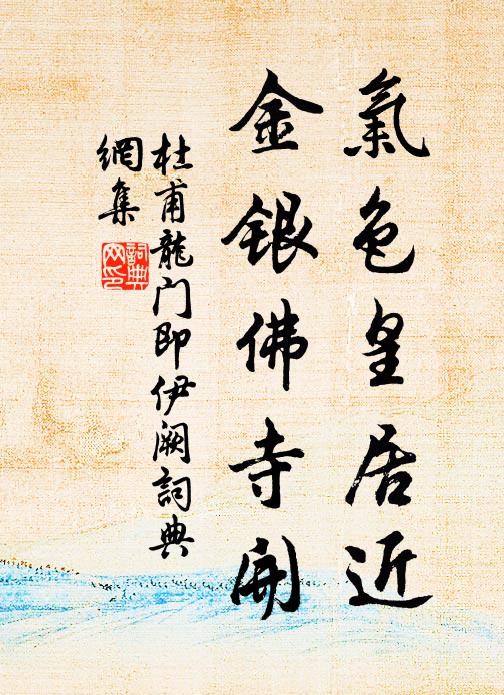 氣色皇居近
金銀佛寺開
杜甫龍门即伊阙詞典
網集
詞典
网印